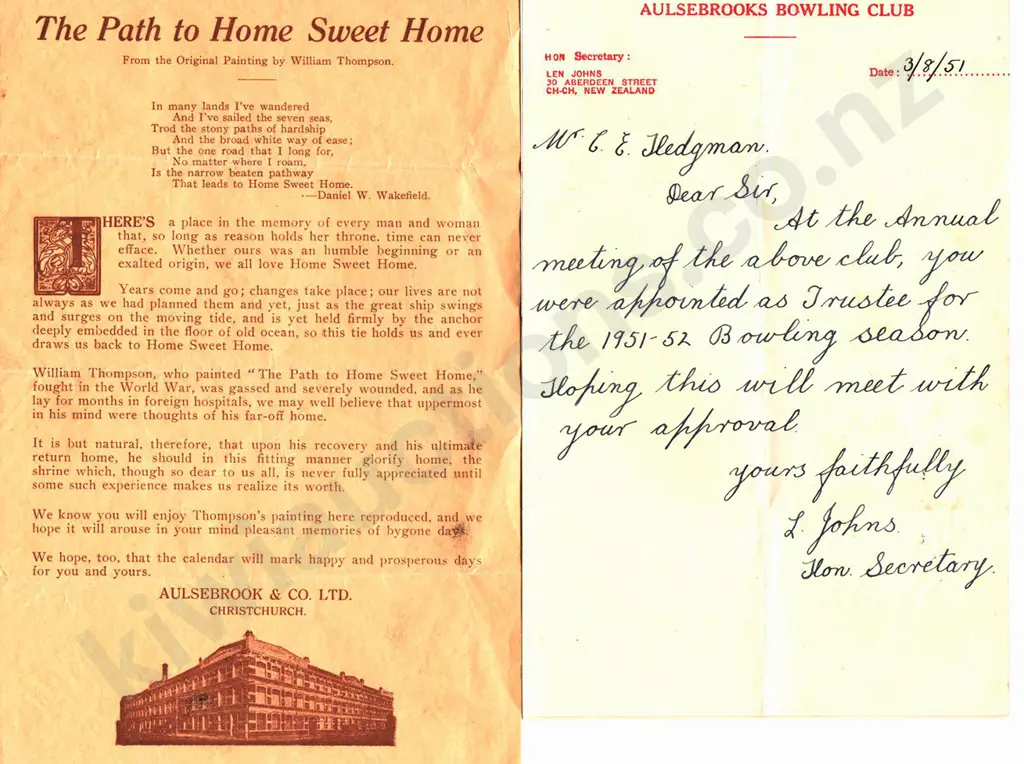 The Path to Home Sweet Home
From the Original Painting by William Thompson.
In many lands I've wandered
And I've sailed the seven seas,
Trod the stony paths of hardship
And the broad white way of ease;
But the one road that I long for,
No matter where I roam,
Is the narrow beaten pathway
That leads to Home Sweet Home.
—Daniel W. Wakefield.
THERE'S a place in the memory of every man and woman
that, so long as reason holds her throne, time can never
efface. Whether ours was an humble beginning or an
exalted origin, we all love Home Sweet Home.
Years come and go; changes take place; our lives are not
always as we had planned them and yet, just as the great ship swings
and surges on the moving tide, and is yet held firmly by the anchor
deeply embedded in the floor of old ocean, so this tie holds us and ever
draws us back to Home Sweet Home.
William Thompson, who painted "The Path to Home Sweet Home,"
fought in the World War, was gassed and severely wounded, and as he
lay for months in foreign hospitals, we may well believe that uppermost
in his mind were thoughts of his far-off home.
It is but natural, therefore, that upon his recovery and his ultimate
return home, he should in this fitting manner glorify home, the
shrine which, though so dear to us all, is never fully appreciated until
some such experience makes us realize its worth.
We know you will enjoy Thompson's painting here reproduced, and we
hope it will arouse in your mind pleasant memories of bygone days.
We hope, too, that the calendar will mark happy and prosperous days
for you and yours.
AULSEBROOK & CO. LTD.
CHRISTCHURCH.
AULSEBROOKS BOWLING CLUB
HON Secretary:
LEN JOHNS
30 ABERDEEN STREET
CH-CH, NEW ZEALAND
Date: 3/8/51
Mr C. E. Hedgman.
Dear Sir,
At the Annual
meeting of the above club, you
were appointed as Trustee for
the 1951-52 Bowling season.
Hoping this will meet with
your approval.
yours faithfully
L. Johns.
Hon. Secretary.
kiwiauctions.co.nz